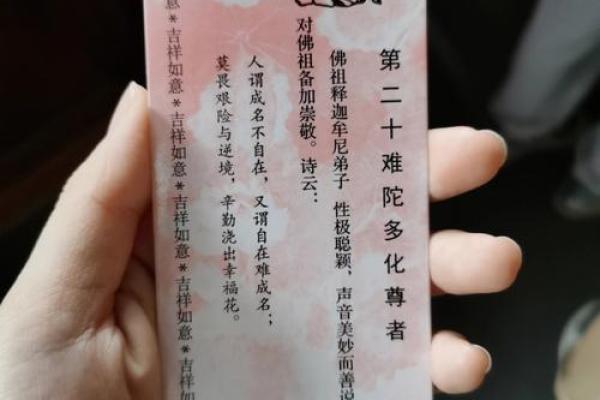 第二十难陀多化尊者
佛祖释迦牟尼弟子 性极聪颖，声音美妙而善说
对佛祖备加崇敬。诗云：
人谓成名不自在，又谓自在难成名；
莫畏艰险与逆境，辛勤浇出幸福花。
意*吉祥如意*吉祥如意*吉祥如意*吉祥如意*吉祥